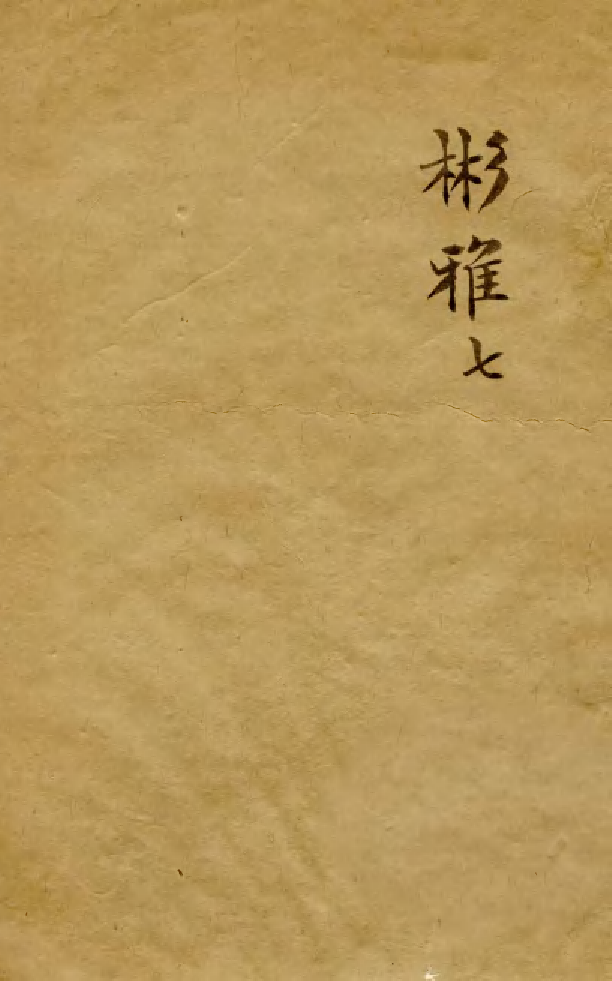 彬雅七